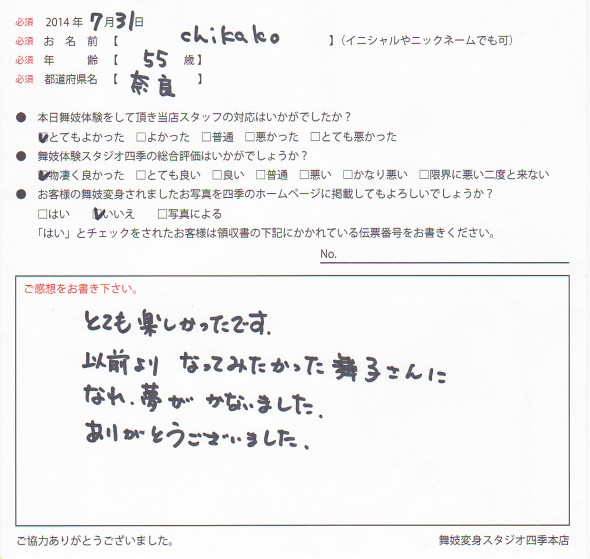 必須 2014年 7月31日
必須 お名前【 chikako 】(イニシャルやニックネームでも可)
必須 年齢【 55 歳】
必須 都道府県名【 奈良 】
● 本日舞妓体験をして頂き当店スタッフの対応はいかがでしたか?
☑とてもよかった □よかった □普通 □悪かった □とても悪かった
● 舞妓体験スタジオ四季の総合評価はいかがでしょうか?
☑物凄く良かった □とても良い □良い □普通 □悪い □かなり悪い □限界に悪い二度と来ない
● お客様の舞妓変身されましたお写真を四季のホームページに掲載してもよろしいでしょうか?
□はい ☑いいえ □写真による
「はい」とチェックをされたお客様は領収書の下記にかかれている伝票番号をお書きください。
No.
ご感想をお書き下さい。
とても楽しかったです.
以前より なってみたかった 舞子さんに
なれ、夢が かないました.
ありがとうございました.
ご協力ありがとうございました。
舞妓変身スタジオ四季本店